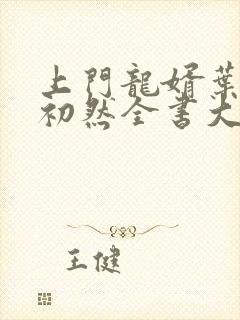 上門龍婿葉
初然全書大
王健